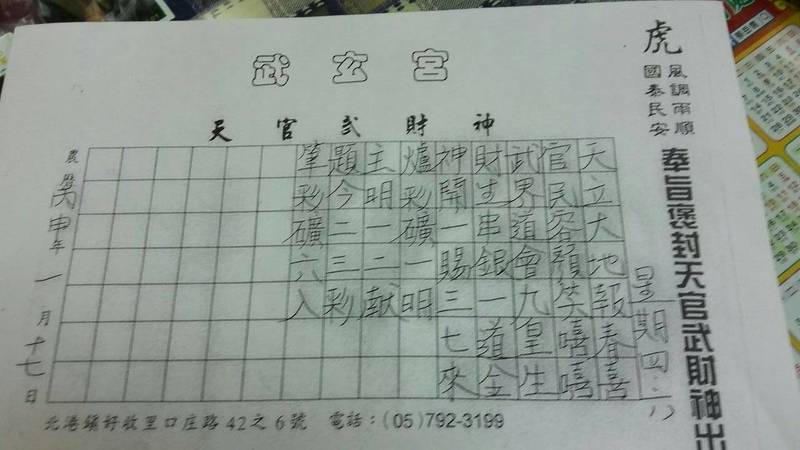 武玄宮
天官武財神
虎
風調雨順
國泰民安
奉旨褒封天官武財神出
星期四
天立大地報春喜
官民客顏笑嘻嘻
武界道會九皇生
財生串銀一道全
神開一賜三七來
爐彩礦一明
主明一二献
題今二三彩
筆彩礦六入
農丙申年一月十七日
北港鎮好收里口庄路42之6號 電話：(05)792-3199